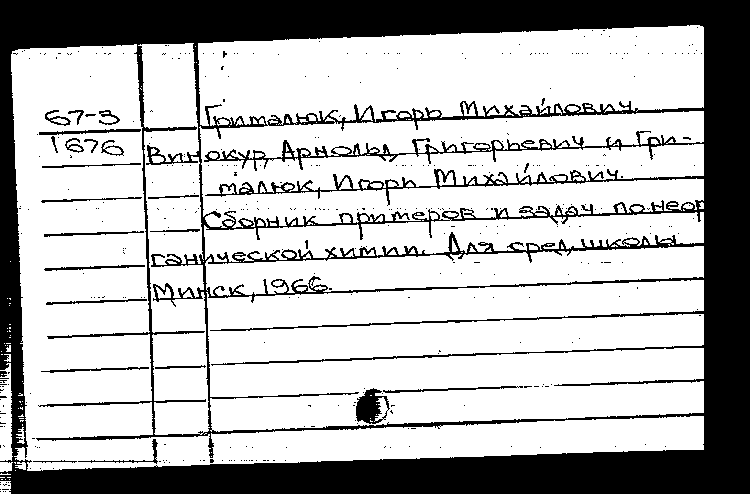 67-3 Грималюк, Игорь Михайлович.
1676 Винокур, Арнольд Григорьевич и Гри-
малюк, Игорь Михайлович.
Сборник примеров и задач по неор
ганической химии. Для сред. школы
Минск, 1966.